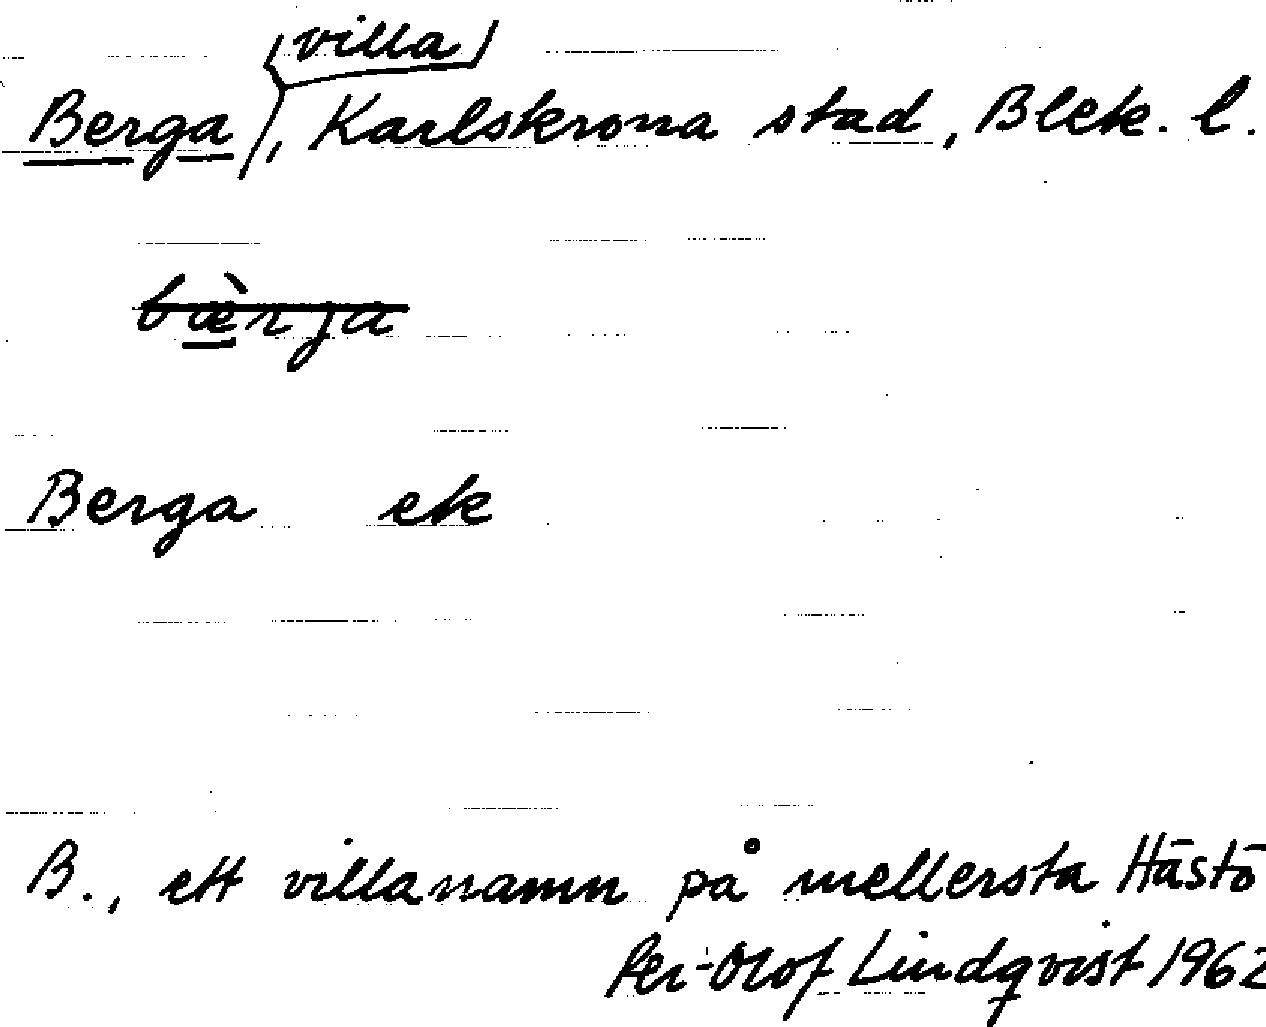 villa
Berga, Karlskrona stad, Blek. l.
bæ̀rja
Berga ek
B., ett villanamn på mellersta Hästö
Per-Olof Lindqvist 1962